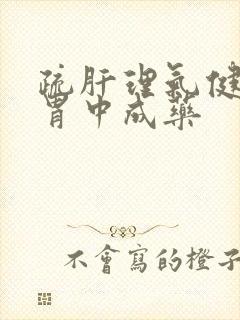 疏肝理气健
胃中成藥
不會寫的橙子